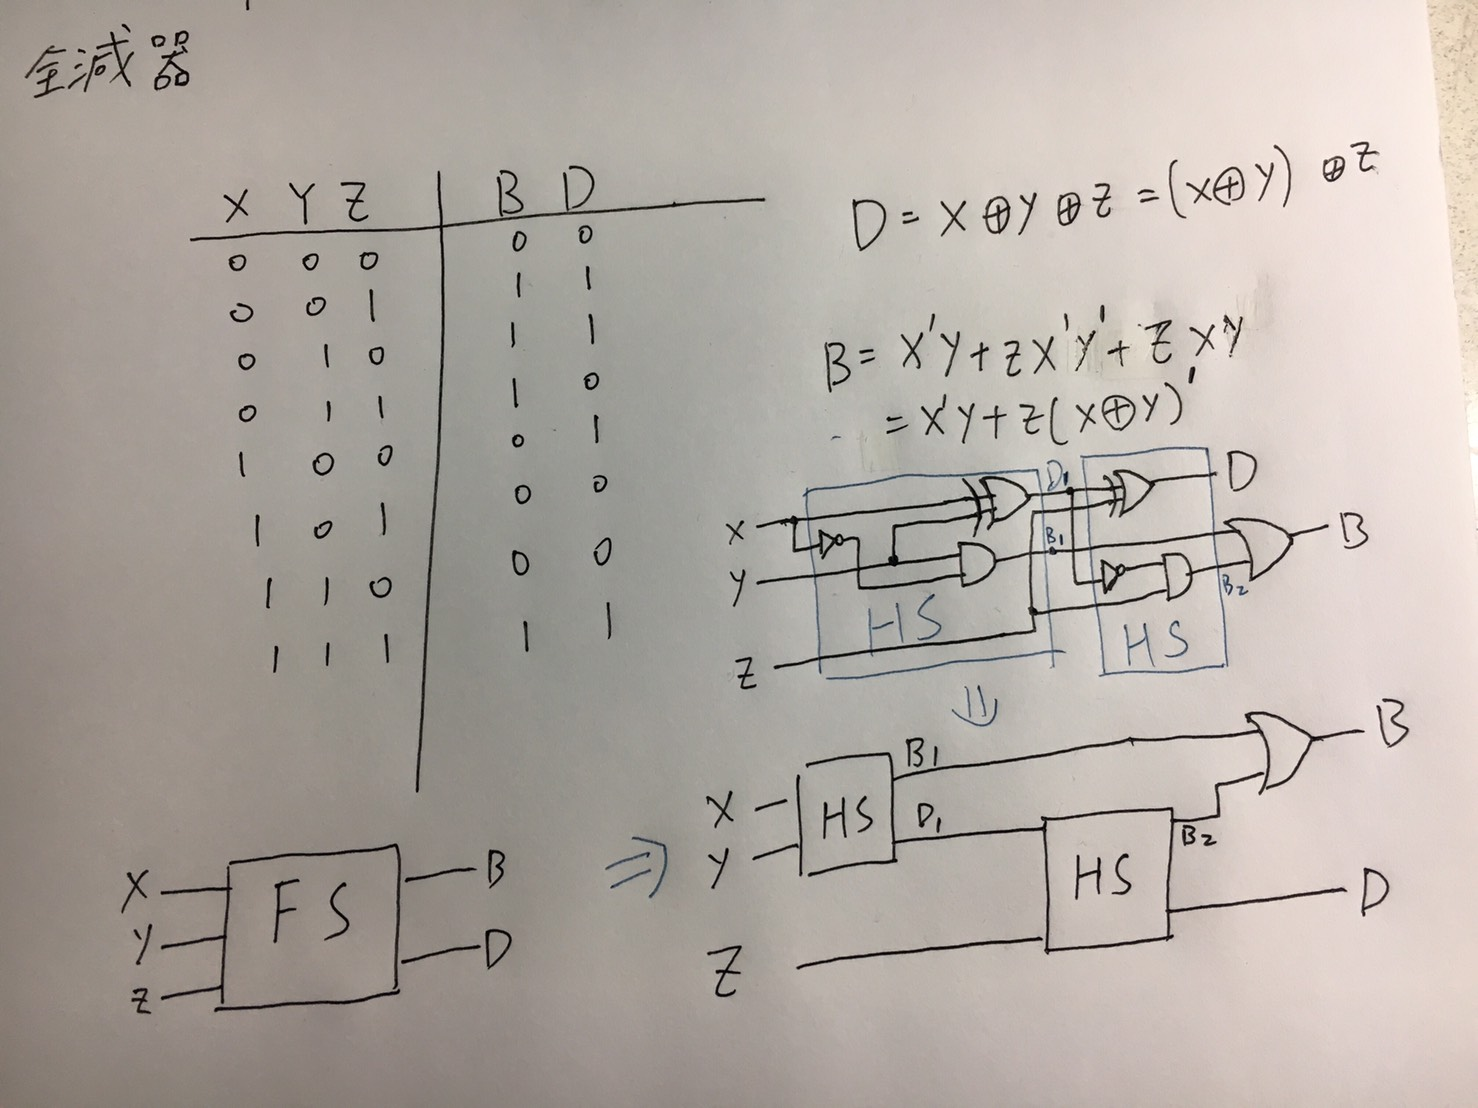 全減器
X Y Z B D
0 0 0 0 0
0 0 1 1 1
0 1 0 1 1
0 1 1 1 0
1 0 0 0 1
1 0 1 0 0
1 1 0 0 0
1 1 1 1 1
D = X ⊕ Y ⊕ Z = (X⊕Y) ⊕ Z
B = X'Y + ZX'Y' + ZXY
= X'Y + Z(X⊕Y)'
X
Y
Z
HS
D₁
B₁
HS
B₂
D
B
⇓
X
Y
Z
FS
B
D
⇒
X
Y
Z
HS
B₁
D₁
HS
B₂
B
D